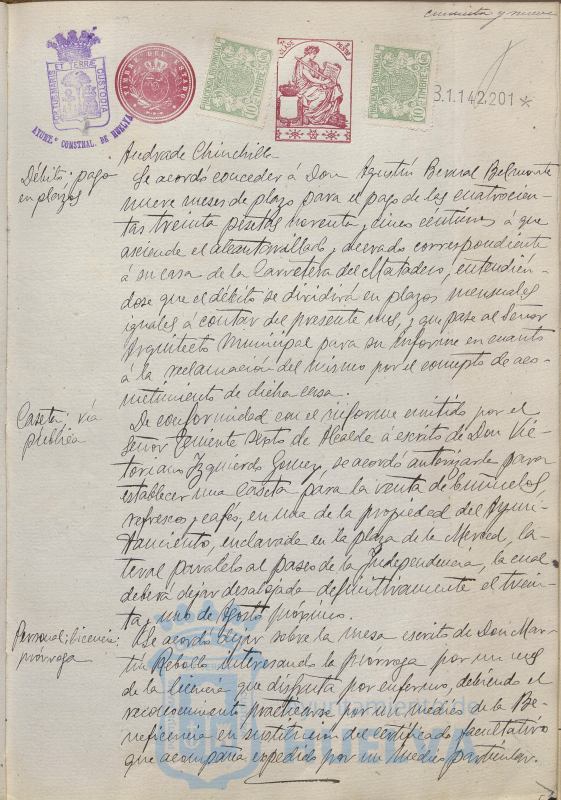 cincuenta y nueve
PORTUS MARIS ET TERRÆ CUSTODIA
AYUNT.º CONSTNAL. DE HUELVA
TIMBRE DEL ESTADO
1ª CLASE
B.1.142.201*
Andrade Chinchilla
Débito; pago
en plazos
Se acordó conceder á Don Agustín Bernal Belmonte
nueve meses de plazo para el pago de las cuatrocien-
tas treinta pesetas noventa y cinco céntimos á que
asciende el alcantarillado y acerado correspondiente
á su casa de la Carretera del Matadero, entendién-
dose que el débito se dividirá en plazos mensuales
iguales á contar del presente mes, y que pase al Señor
Arquitecto Municipal para su informe en cuanto
á la reclamación del mismo por el concepto de aco-
metimiento de dicha casa.
Caseta; vía
pública
De conformidad con el informe emitido por el
Señor Teniente Sexto de Alcalde á escrito de Don Vic-
toriano Izquierdo Gomez, se acordó autorizarle para
establecer una caseta para la venta de buñuelos
refrescos y cafés, en una de la propiedad del Ayun-
tamiento, enclavada en la plaza de la Merced, la-
teral paralelo al paseo de la Independencia, la cual
deberá dejar desalojada definitivamente el trein-
ta y uno de Agosto próximo.
Personal; licencia;
prórroga
Se acordó dejar sobre la mesa escrito de Don Mar-
tín Rebollo interesando la prórroga por un mes
de la licencia que disfruta por enfermo, debiendo el
reconocimiento practicarse por un médico de la Be-
neficencia en sustitución del certificado facultativo
que acompaña expedido por un médico particular.
Ayuntamiento de
HUELVA